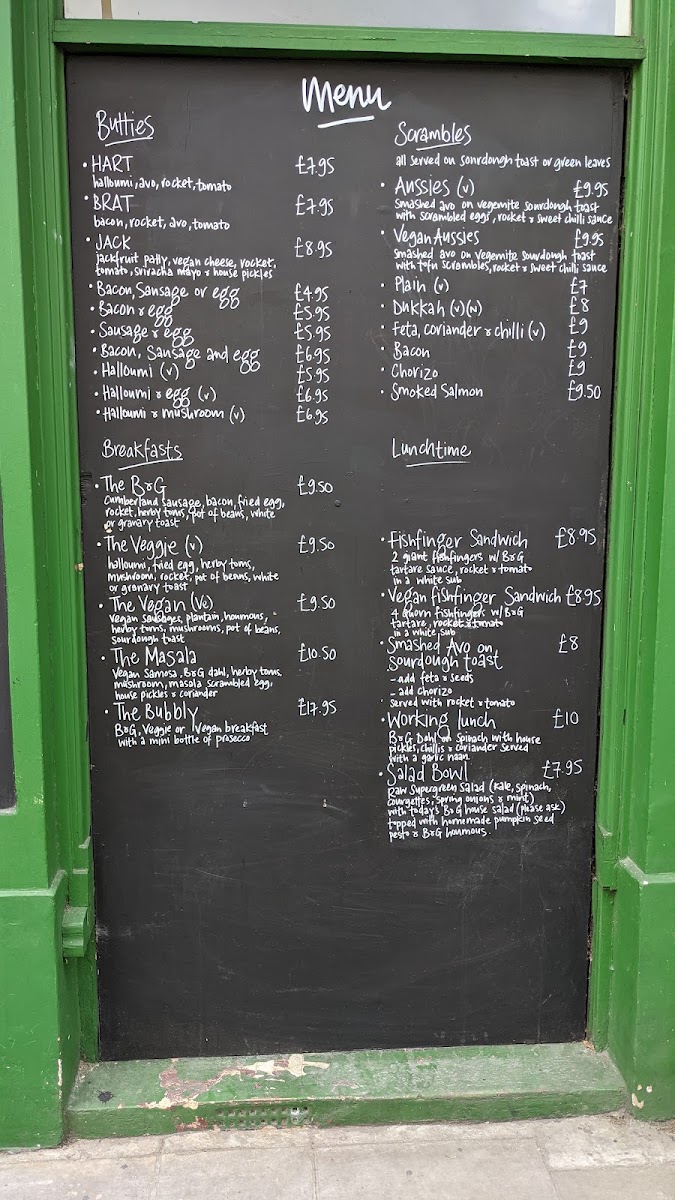 Menu
Butties
• HART £7.95
halloumi, avo, rocket, tomato
• BRAT £7.95
bacon, rocket, avo, tomato
• JACK £8.95
jackfruit patty, vegan cheese, rocket,
tomato, sriracha mayo & house pickles
• Bacon, Sausage or egg £4.95
• Bacon & egg £5.95
• Sausage & egg £5.95
• Bacon, Sausage and egg £6.95
• Halloumi (v) £5.95
• Halloumi & egg (v) £6.95
• Halloumi & mushroom (v) £6.95
Breakfasts
• The B&G £9.50
Cumberland sausage, bacon, fried egg,
rocket, herby toms, pot of beans, white
or granary toast
• The Veggie (v) £9.50
halloumi, fried egg, herby toms,
mushroom, rocket, pot of beans, white
or granary toast
• The Vegan (Ve) £9.50
Vegan sausages, plantain, houmous,
herby toms, mushrooms, pot of beans,
sourdough toast
• The Masala £10.50
Vegan samosa, B&G dahl, herby toms,
mushroom, masala scrambled egg,
house pickles & coriander
• The Bubbly £17.95
B&G, Veggie or Vegan breakfast
with a mini bottle of prosecco
Scrambles
all served on sourdough toast or green leaves
• Aussies (v) £9.95
Smashed avo on vegemite sourdough toast
with scrambled eggs, rocket & sweet chilli sauce
• Vegan Aussies £9.95
Smashed avo on vegemite sourdough toast
with tofu scrambles, rocket & sweet chilli sauce
• Plain (v) £7
• Dukkah (v)(N) £8
• Feta, coriander & chilli (v) £9
• Bacon £9
• Chorizo £9
• Smoked Salmon £9.50
Lunchtime
• Fishfinger Sandwich £8.95
2 giant fishfingers w/ B&G
tartare sauce, rocket & tomato
in a white sub
• Vegan fishfinger Sandwich £8.95
4 Quorn fishfingers w/ B&G
tartare, rocket & tomato
in a white sub
• Smashed Avo on £8
sourdough toast
- add feta & seeds
- add chorizo
served with rocket & tomato
• Working lunch £10
B&G Dahl on spinach with house
pickles, chillis & coriander served
with a garlic naan
• Salad Bowl £7.95
Raw Supergreen Salad (kale, spinach,
courgettes, spring onions & mint)
with today's B&G house salad (please ask)
topped with homemade pumpkin seed
pesto & B&G houmous.